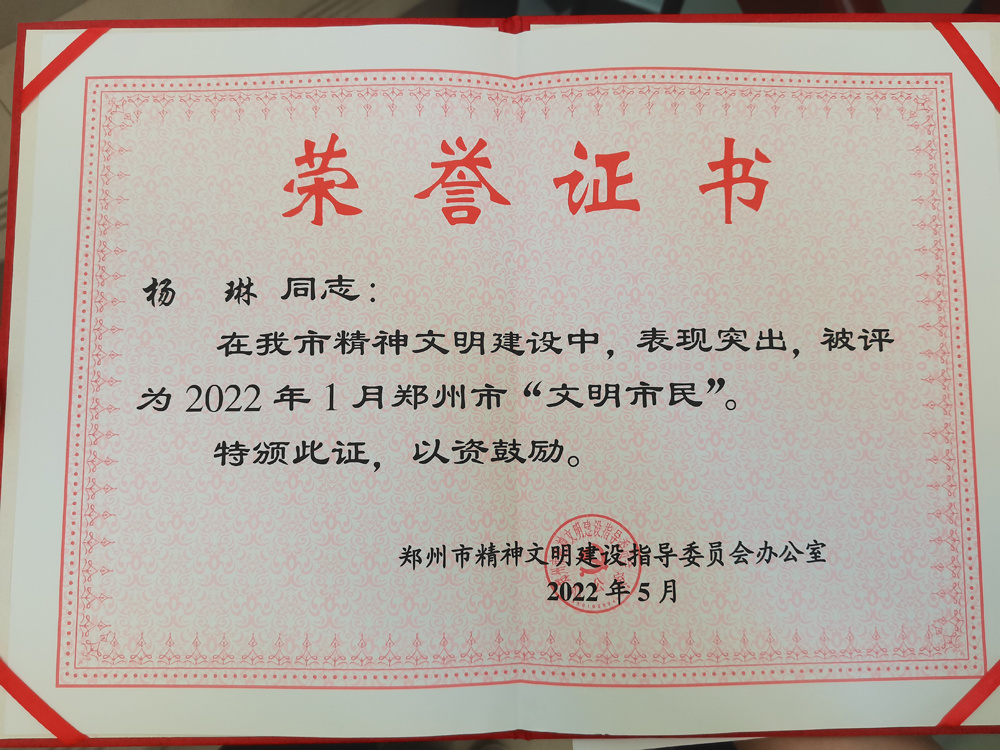 荣誉证书
杨 琳 同志：
在我市精神文明建设中，表现突出，被评
为 2022 年 1 月郑州市“文明市民”。
特颁此证，以资鼓励。
郑州市精神文明建设指导委员会办公室
2022 年 5 月